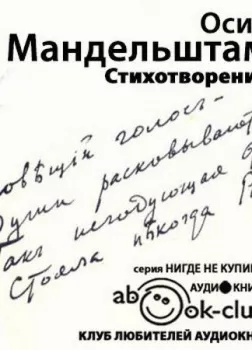 Оси
Мандельштам
Стихотворени
зловѣщій голосъ —
Души расковываетъ
Такъ негодующая
Стояла нѣкогда
серия НИГДЕ НЕ КУПИ
АУДИ КНИ
ab ok-clu
КЛУБ ЛЮБИТЕЛЕЙ АУДИОКН